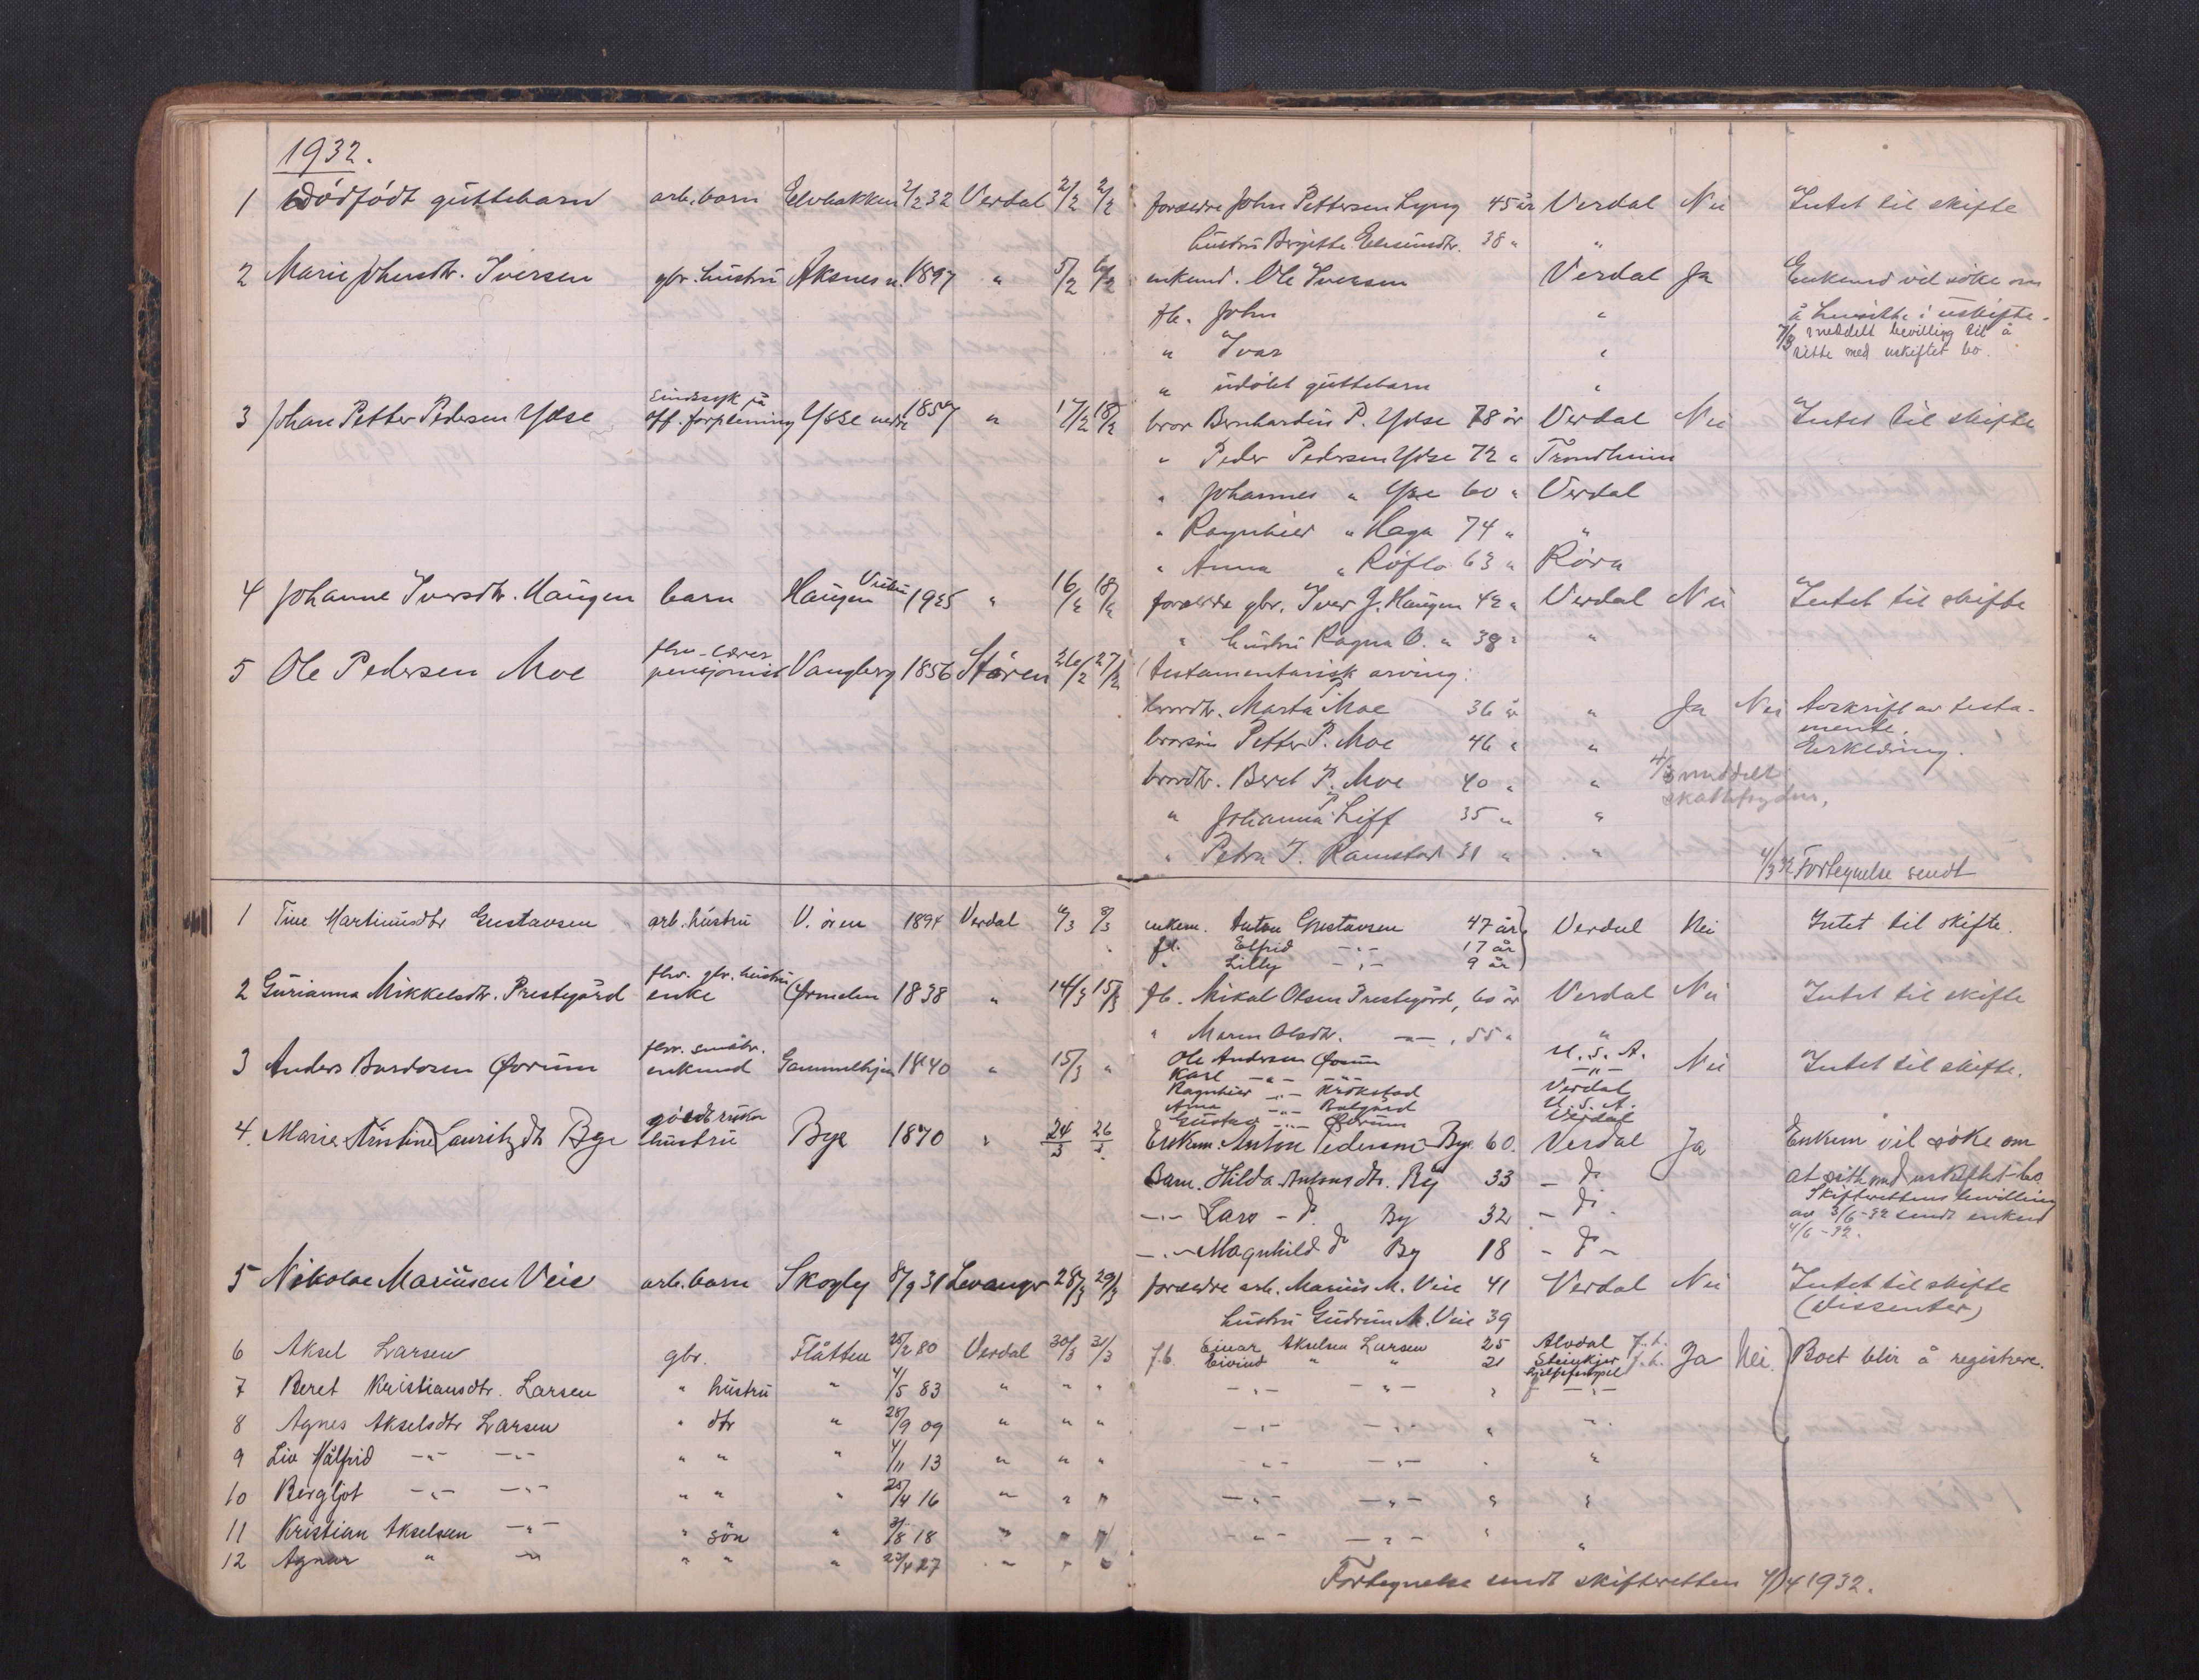 1932.
1 Dødfødt guttebarn arb. barn Elvbakken 2/2 32 Verdal 2/2 2/2 foreldre John Pettersen Lyng 45 år Verdal Nei Intet til skifte
hustru Birgitte 38 " "
2 Marie Johnsdtr. Iversen gbr. hustru Aksnes 1897 " 5/2 6/2 enkemd. Ole Iversen Verdal Ja Enkemd vil söke om
fb. John " å hensitte i uskifte.
" Ivar " 7/3 meddelt bevilling til å
sitte med uskiftet bo.
" udöbt guttebarn "
3 Johan Petter Pedersen Ydse Sindssyk på
off. forpleining Ydse nedre 1857 " 17/2 18/2 bror Bernhardus P. Ydse 78 år Verdal Nei Intet til skifte
" Peder Pedersen Ydse 72 " Trondheim
" Johannes " Ydse 60 " Verdal
" Ragnhild " Haga 74 " "
" Anna " Röflo 63 " Röra
4 Johanne Iversdtr. Haugen barn Haugen 1925 " 16/2 18/2 foreldre gbr. Iver J. Haugen 42 " Verdal Nei Intet til skifte
" hustru Ragna O. " 38 " "
5 Ole Pedersen Moe fhv. lærer
pensjonist Vangberg 1856 Stören 26/2 27/2 Testamentarisk arving:
brordtr. Marta P. Moe 36 år " Ja Nei Avskrift av testa-
mente.
brorsön Petter P. Moe 46 " " Erklæring.
brordtr. Beret P. Moe 40 " " 4/3 meddelt
skattefrydn,
" Johanna P. Liff 35 " "
" Petra P. Ramstad 31 " "
4/3 32 Fortegnelse sendt
1 Tine Martinusdtr Gustavsen arb. hustru V. ören 1894 Verdal 6/3 8/3 enkem. Anton Gustavsen 47 år Verdal Nei Intet til skifte.
fb. Elfrid -"- 17 år
" Lilly -"- 9 år
2 Gurianna Mikkelsdtr. Prestegård fhv. gbr. hustru
enke Ørmelen 1838 " 14/3 15/3 fb. Mikal Olsen Prestegård, 60 år Verdal Nei Intet til skifte
" Maren Olsdtr. -"-, 55 " "
3 Anders Bardosen Øvrum fhv. småbr.
enkemd Gammelhjem 1840 " 15/3 " Ole Andersen Øvrum U. S. A. Nei Intet til skifte.
Karl -"- -"- -"-
Ragnhild -"- Krokstad Verdal
Anna -"- Balgård U. S. A.
Gustav -"- Øvrum Verdal
4. Marie Kristine Lauritzdtr Bye gårdbruker
hustru Bye 1870 " 24/3 26/3 Enkem. Anton Pedersen Bye 60. Verdal Ja Enkem vil söke om
Barn. Hilda Antonsdtr. By 33 - do at sitte med uskiftet bo
Skifterettens bevilling
-"- Lars - do. By 32 - do. av 3/6-32 sendt enkemd
4/6-32.
-"- Magnhild do By 18 - do -
5 Nikolae Mariusen Veie arb. barn Skogly 8/9 31 Levanger 28/3 29/3 foreldre arb. Marius M. Veie 41 Verdal Nei Intet til skifte
(dissenter)
hustru Gudrun M. Veie 39
6 Aksel Larsen gbr. Flåtten 25/2 80 Verdal 30/3 31/3 fb. Einar Akselsen Larsen 25 Alvdal f.t. Ja Nei. Boet blir å registrere.
Eivind " " 21 Steinkjer f.t.
7 Beret Kristiansdtr. Larsen " hustru " 4/5 83 " " " -"- -"- " -"-
8 Agnes Akselsdtr Larsen " dtr " 28/9 09 " " " -"- -"- " "
9 Liv Målfrid -"- -"- " " " 4/11 13 " " " -"- -"- " "
10 Bergljot -"- -"- " " " 25/4 16 " " " -"- -"- " "
11 Kristian Akselsen -"- " sön " 3/8 18 " " " -"- -"- " "
12 Agnar " -"- " " " 23/4 27 " " "
Fortegnelse sendt skifteretten 4/4 1932.